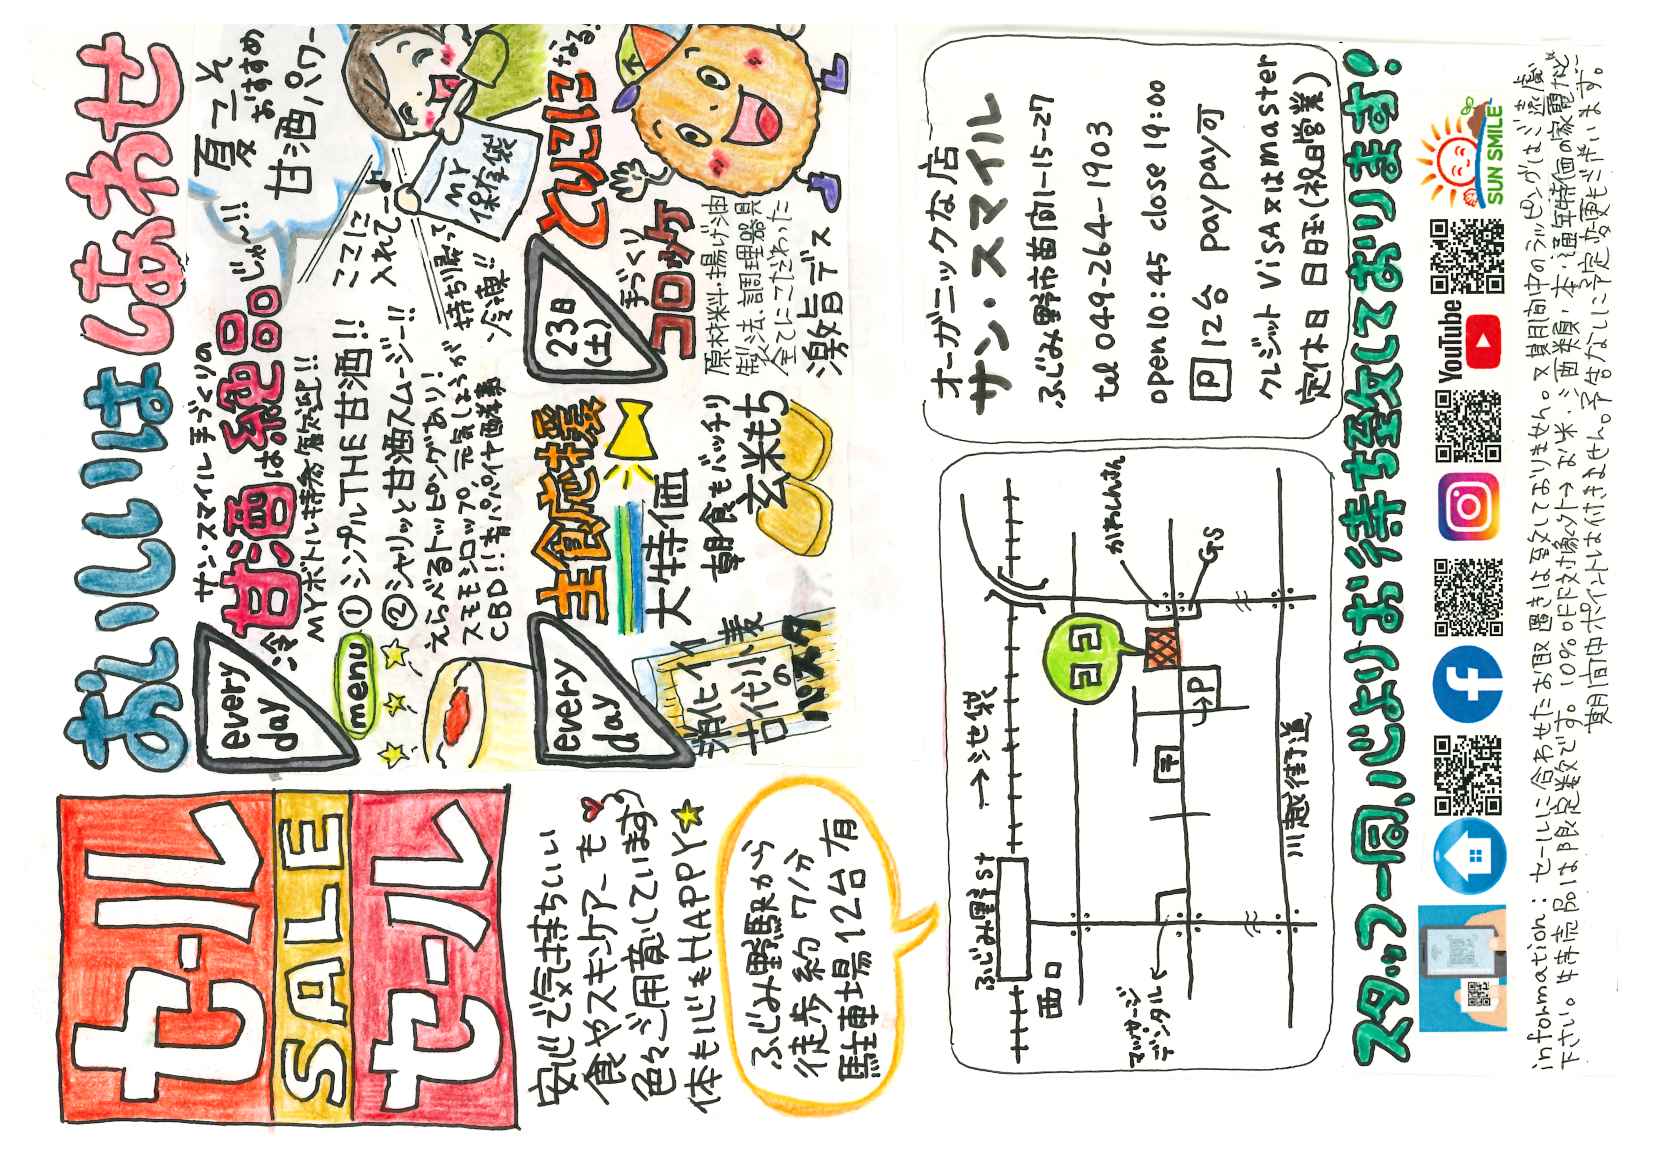 セール
SALE
セール
おいしいは しあわせ
every
day
サン・スマイル手づくりの
冷 甘酒は絶品。じゃ〜!!
MYボトル持参大歓迎!!
menu
① シンプルTHE甘酒!!
② シャリッと甘酒スムージー!!
えらべるトッピングあり!
スモモシロップ、元気しょうが
CBD!!青パパイヤ酵素
夏こそ
おすすめ
甘酒パワー
ここに
入れて〜♪
MY
保冷袋
持ち帰って
冷凍!!
every
day
主食応援
大特価
消化イイ
古代小麦
の
パスタ
朝食もバッチリ
玄米もち
23日
(土)
とりこになる!
手づくり
コロッケ
原材料・揚げ油
製法、調理器具
全てにこだわった
激旨デス
安心で気持ちいい
食やスキンケアーも
色々ご用意しています
体も心もHAPPY
ふじみ野駅から
徒歩約7分
駐車場12台有
ふじみ野st
→シ世袋
西口
マッサージ
デンタル
〒
→P
ココ
かわしんさん
GS
川越街道
オーガニックな店
サン・スマイル
ふじみ野市苗間1-15-27
tel 049-264-1903
open10:45 close 19:00
P 12台 paypay可
クレジット ViSA又はmaster
定休日 日曰(祝日営業)
スタッフ一同、心よりお待ち致しております!
YouTube
SUN SMILE
infowmation:セールに合わせたお取置きは致しておりません。又期間中のラッピングはご遠慮
下さい。特売品は限定数です。10%OFF対象外→お米・酒類・本・通年特価の家電など
期間中ポイントは付きません。予告なしに予定変更もございます。